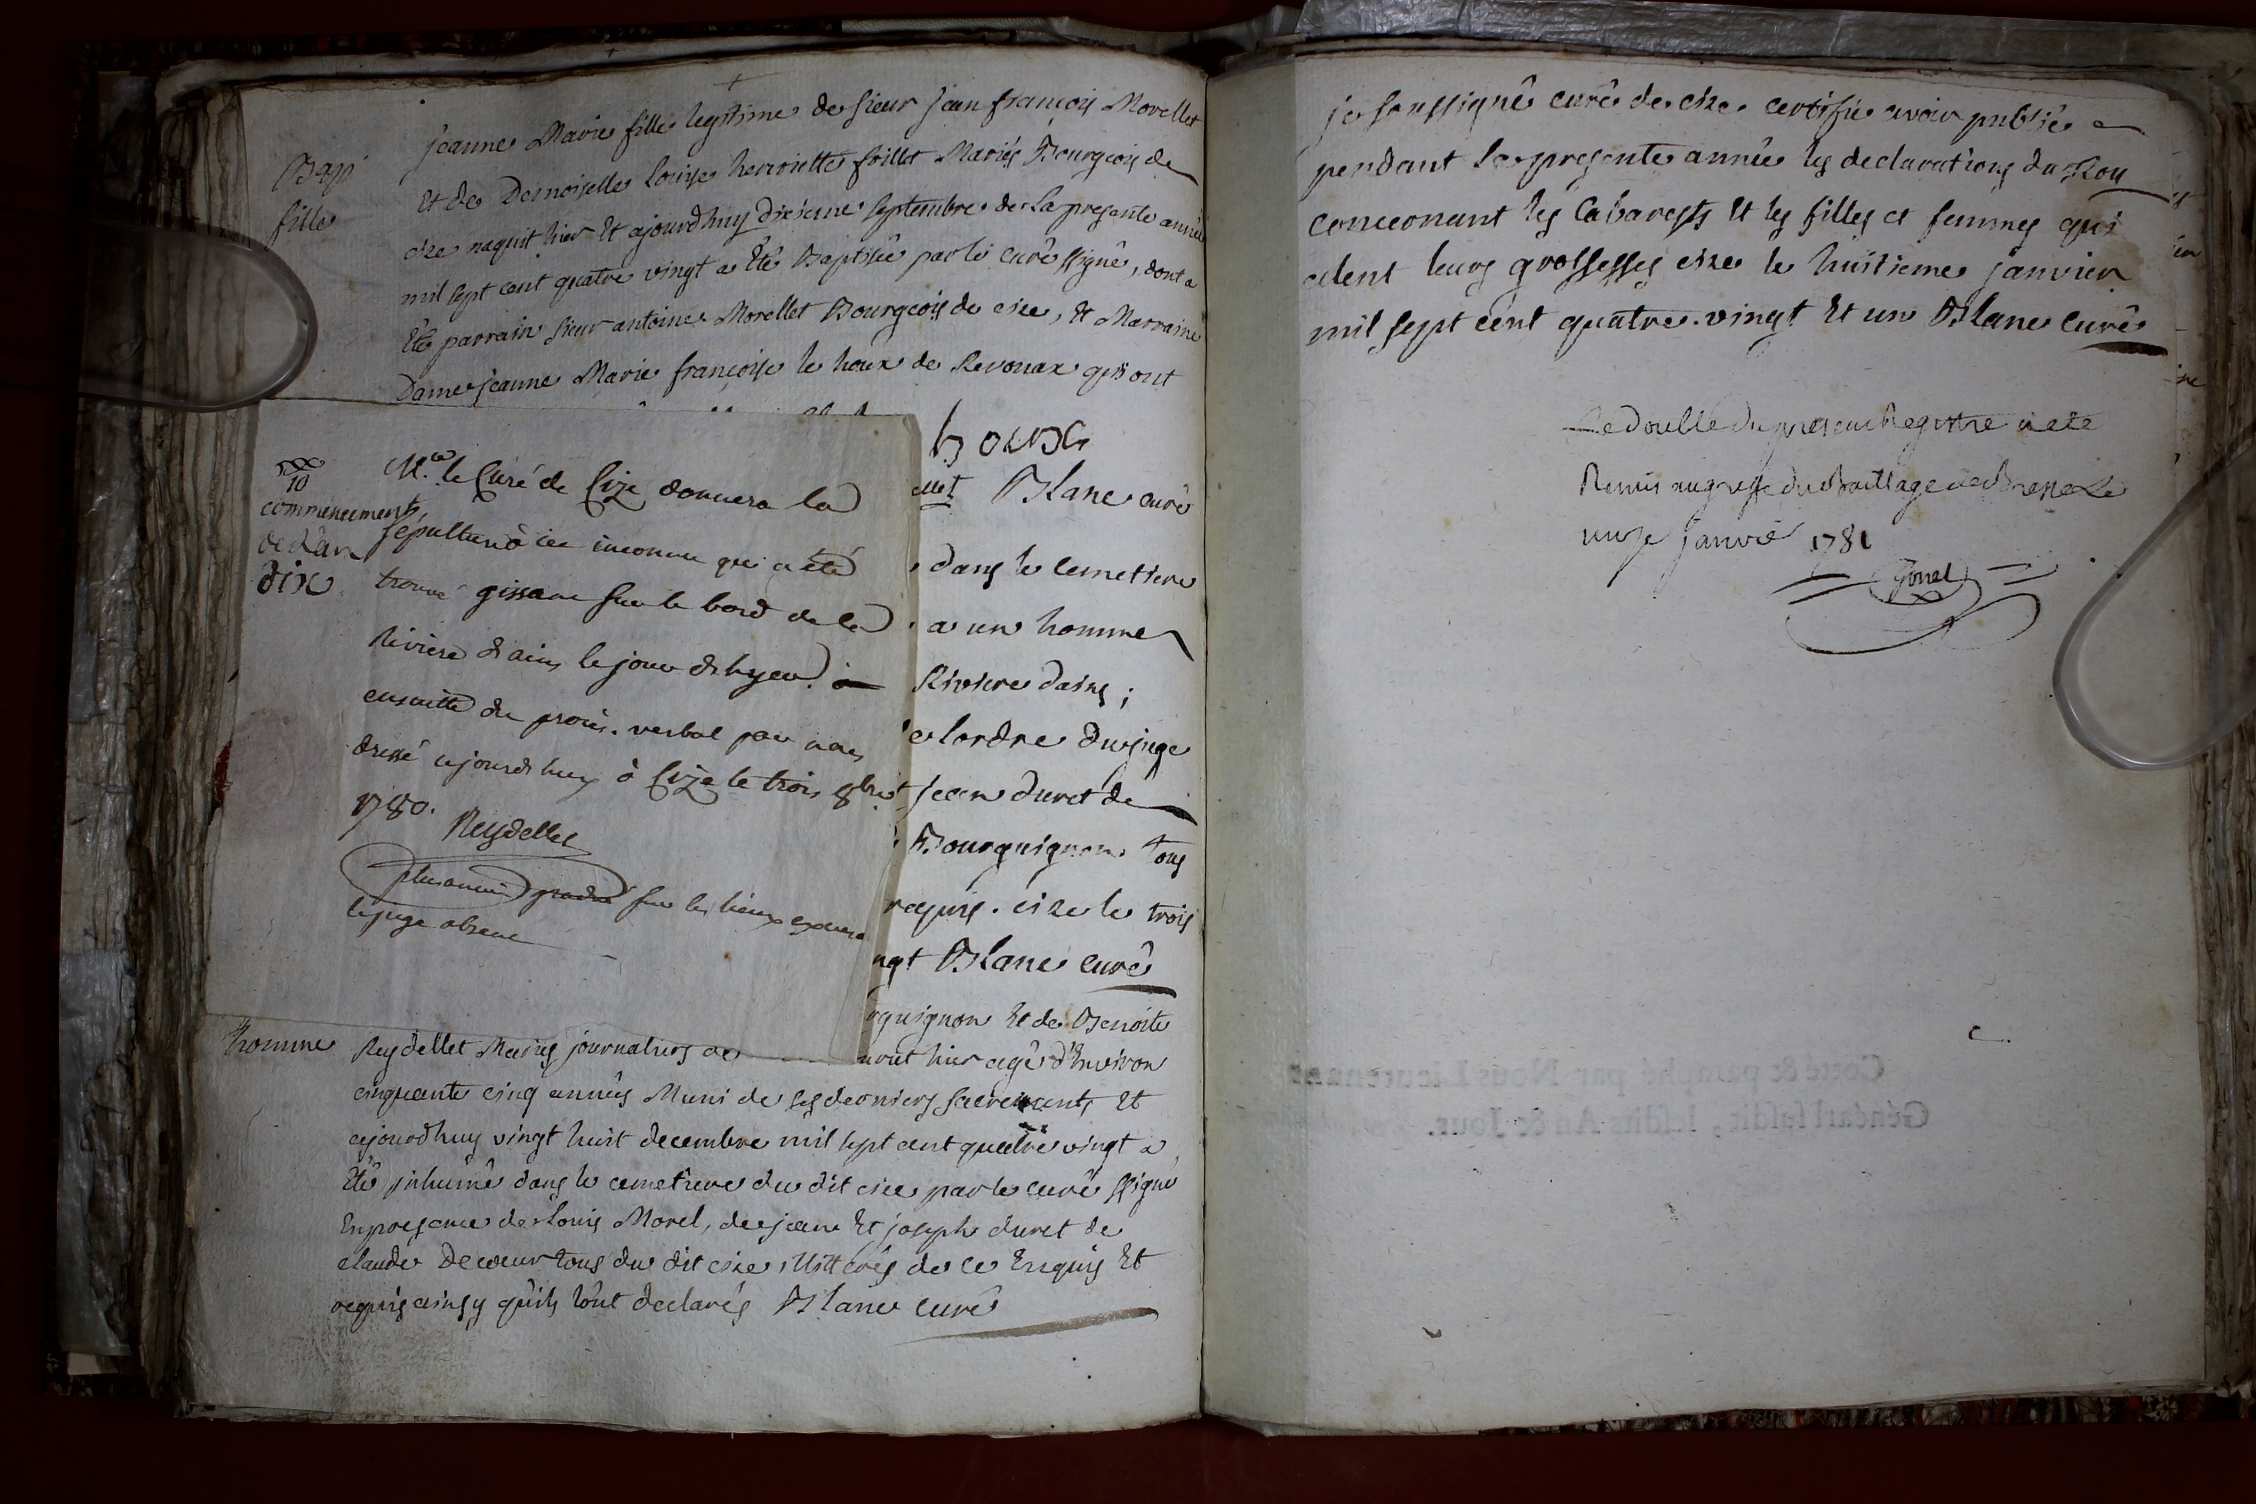 Bapt
fille
jeanne Marie fille legitime de sieur jean françois Morellet
Et de Demoiselle louise henriette foillet Mariés Bourgeois de
cize naquit hier Et ajourdhuy dixieme septembre de La presente année
mil sept cent quatre vingt a Eté Baptisée par le curé ssigné, dont a
Eté parrain sieur antoine Morellet Bourgeois de cize, Et Marraine
Dame jeanne Marie françoise le houx de Revonax qui ont
houx
ellet Blanc curé
10
commencement
de L'an
dix
Mr. le Curé de Cize donnera la
sépulture à cet inconnu qui a été
trouvé gissant sur le bord de la
Rivière d'ain, le jour d'hyer. a
ensuitte du procès-verbal par nous
dressé ajourd'huy à Cize le trois 8bre
1780. Reydellet
plus ancien gradué sur les lieux
le juge absent
dans le cemetiere
a un homme
Riviere dains ;
e lordre du juge
jean duret de
Bourguignon tous
requis. cize le trois
ngt Blanc curé
homme
guignon Et de Benoite
Reydellet Mariés journaliers de
mourut hier agé d'Environ
cinquante cinq années Muni de ses derniers sacrements Et
ajourdhuy vingt huit decembre mil sept cent quatre vingt a
Eté inhumé dans le cemetiere du dit cize par le curé ssigné
En presence de Louis Morel, de jean Et joseph duret de
claude Decoeur tous du dit cize, illitterés de ce Enquis Et
requis ainsy qu'ils l'ont declarés Blanc curé
je soussigné curé de cize certifie avoir publié
pendant la presente année les declarations du Roy
concernant les Cabarests Et les filles et femmes qui
celent leurs grossesses cize le huitieme janvier
mil sept cent quatre-vingt Et un Blanc curé
Le double du present Registre a eté
Remis au greffe du Baillage de Bresse Le
unze janvié 1781
Cotte & paraphé par Nous Lieutenant
Général susdit, lesdits An & Jour.